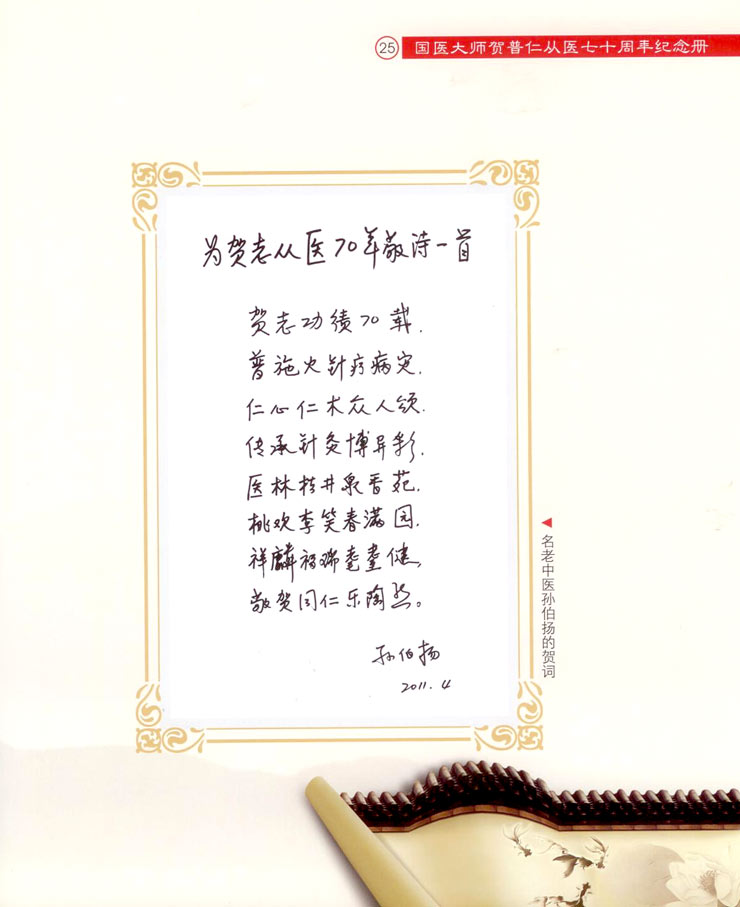 25 国医大师贺普仁从医七十周年纪念册
为贺老从医70年敬诗一首
贺老功绩70载.
普施火针疗病灾.
仁心仁术众人颂.
传承针灸博异彩.
医林桔井泉香苑.
桃欢李笑春满园.
祥麟福瑞耄耋健.
敬贺同仁乐陶然。
孙伯扬
2011.4
名老中医孙伯扬的贺词